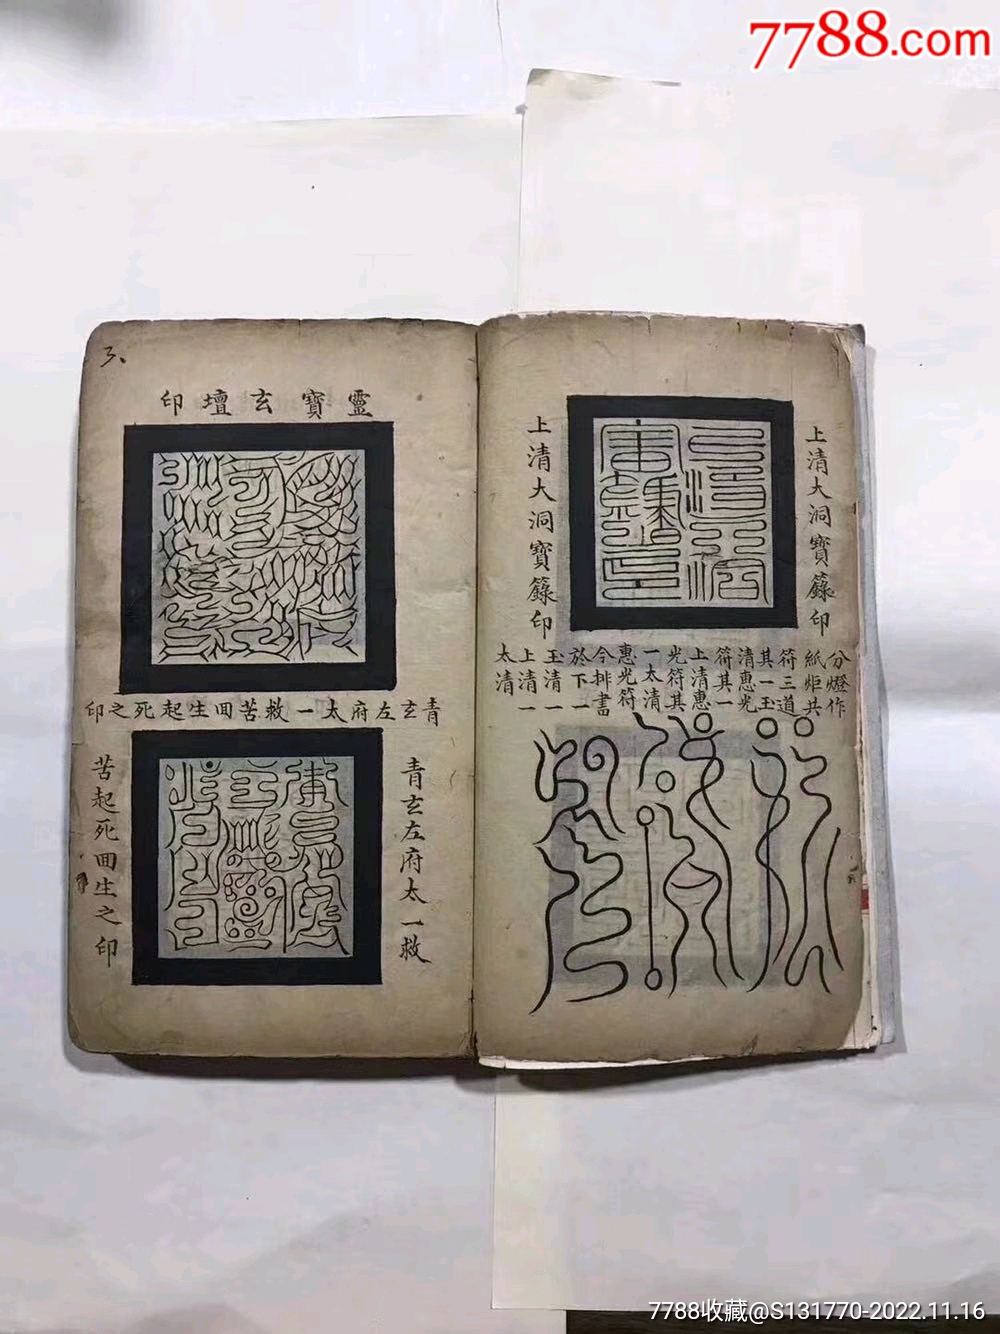 7788.com
上清大洞寶籙印
上清大洞寶籙印
分燈作
紙炬共
符三道
其一玉
清惠光
符其一
上清惠
光符其
一太清
惠光符
今排書
於下一
玉清一
上清一
太清
3、
靈寶玄壇印
青玄左府太一救苦囬生起死之印
青玄左府太一救
苦起死囬生之印
7788收藏@S131770-2022.11.16